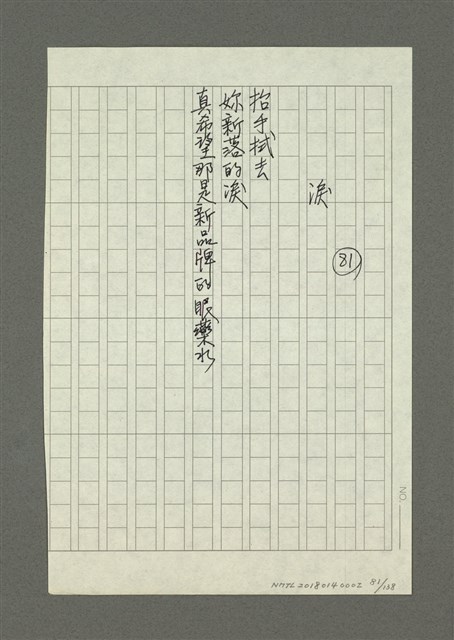 81
淚
抬手拭去
妳新落的淚
真希望那是新品牌的眼藥水
NO.
NMTL 2018014 0002 81/138